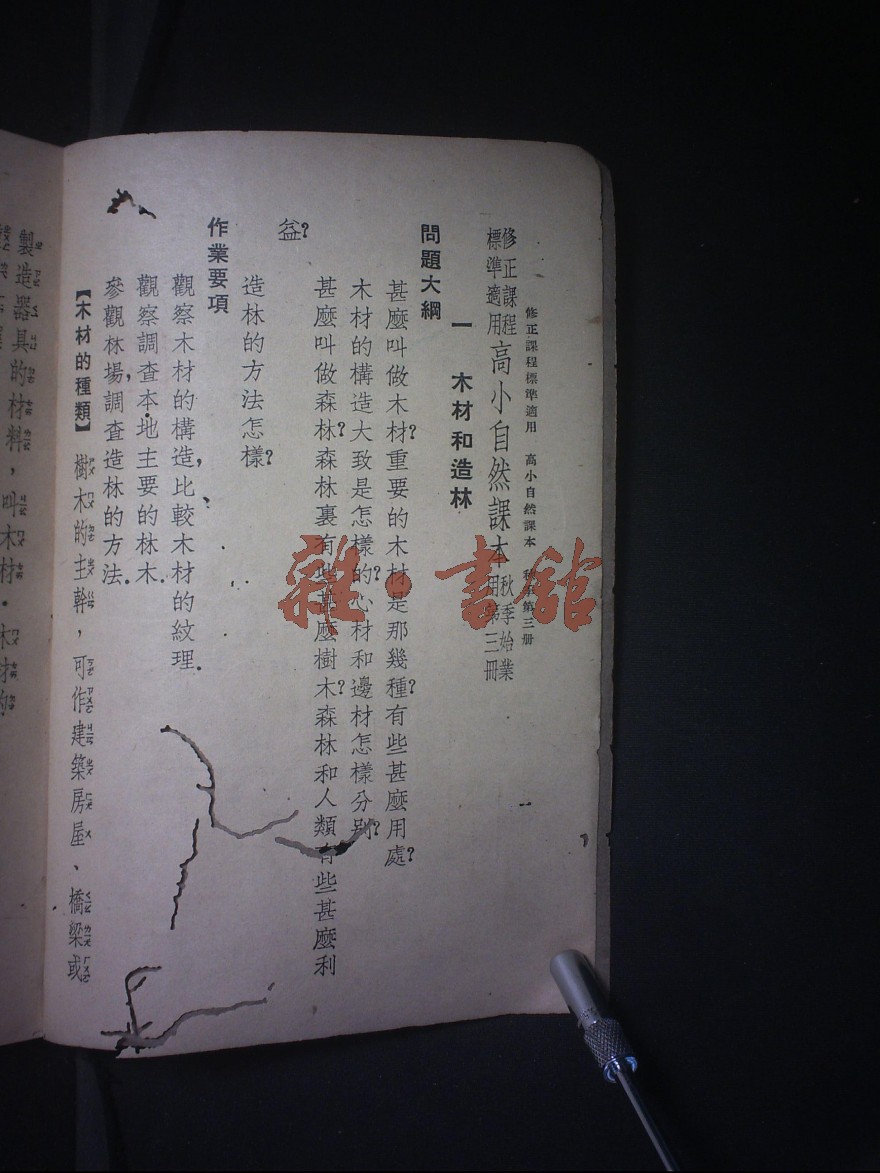 修正課程標準適用 高小自然課本 秋季第三册
修正課程標準適用高小自然課本秋季始業用第三冊
一 木材和造林
問題大綱
甚麼叫做木材?重要的木材是那幾種?有些甚麼用處?
木材的構造大致是怎樣的?心材和邊材怎樣分別?
甚麼叫做森林?森林裏有些甚麼樹木?森林和人類有些甚麼利
益?
造林的方法怎樣?
作業要項
觀察木材的構造,比較木材的紋理.
觀察調查本地主要的林木.
參觀林場,調查造林的方法.
【木材的種類】 樹木的主幹,可作建築房屋、橋梁或
製造器具的材料,叫木材.木材的
雜·書館